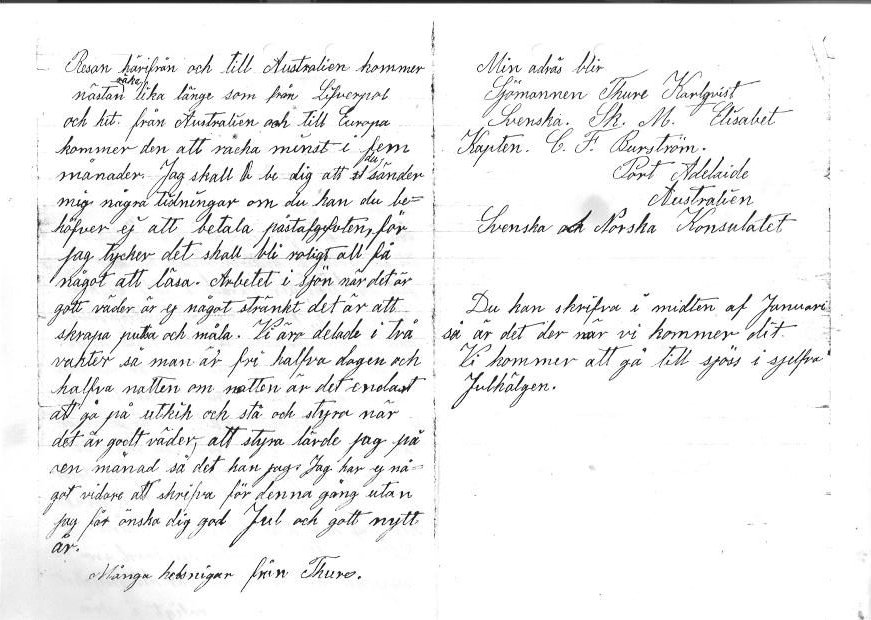 Resan härifrån och till Australien kommer
räcka
nästan lika länge som från Lifverpol
och hit. från Australien och till Europa
kommer den att räcka minst i fem
månader. Jag skall be dig att du sänder
mig några tidningar om du kan du be-
höfver ej att betala påstafgeften, för
jag tycker det skall bli roligt att få
något att läsa. Arbetet i sjön när det är
gott väder är ej något stränkt det är att
skrapa putsa och måla. Vi äro delade i två
vakter så man är fri halfva dagen och
halfva natten om natten är det endast
att gå på utkik och stå och styra när
det är godt väder, att styra lärde jag på
en månad så det kan jag. Jag har ej nå-
got vidare att skrifva för denna gång utan
jag får önska dig god Jul och gott nytt
år.
Många helsnigar från Thure.
Min adräs blir
Sjömannen Thure Karlqvist
Svenska. Sk. M. Elisabet
Kapten. C. F. Burström.
Port Adelaide
Australien
Svenska och Norska Konsulatet
Du kan skrifva i midten af Januari
så är det der när vi kommer dit
Vi kommer att gå till sjöss i sjelfva
Julhälgen.